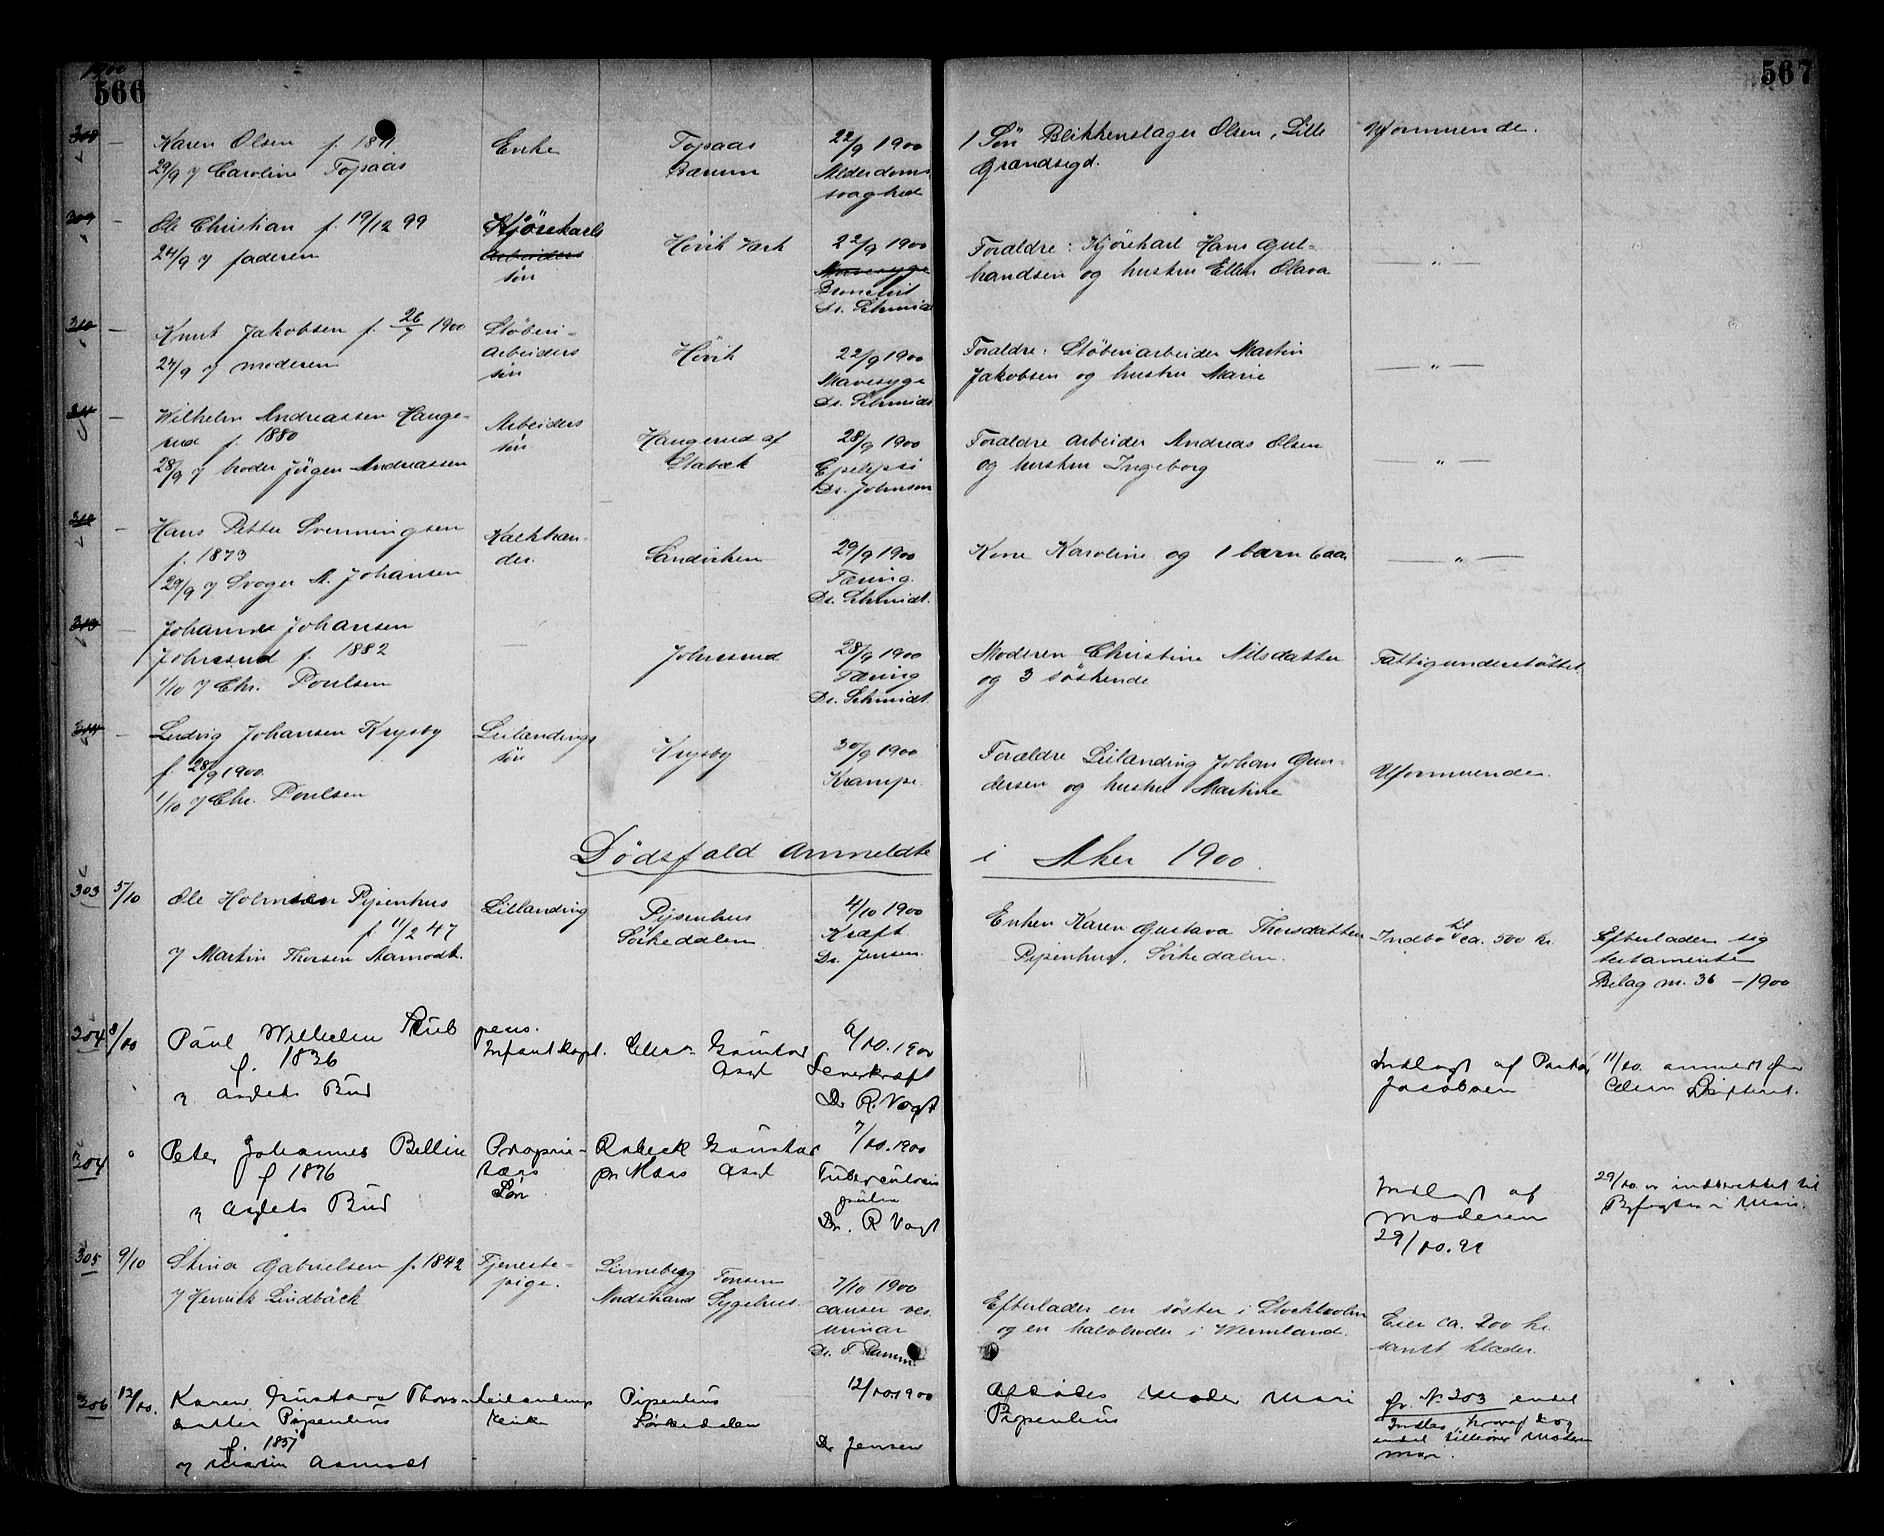 1900
566
567
308 — Karen Olsen f. 18
29/9 v Caroline Topaas
Enke
Topaas
Bærum
22/9 1900
Alderdoms
svaghed
1 Søn Blikkenslager Olsen, Lille
Grændsegd.
Uformuende.
309 — Ole Christian f. 19/12 99
24/9 v faderen
Kjørekarls
Arbeiders
søn
Høvik Værk
22/9 1900
Mavesyge
Dr. Schmidt
Forældre: Kjørekarl Hans Gul-
brandsen og hustru Ellen Olava
— " —
310 — Knut Jakobsen f. 26/7 1900
24/9 v moderen
Støberi-
arbeiders
søn
Høvik
22/9 1900
Mavesyge
Dr. Schmidt
Forældre: Støberiarbeider Martin
Jakobsen og hustru Marie
— " —
311 — Wilhelm Andreassen Hauge-
rud f. 1880
28/9 v broder Jørgen Andreassen
Arbeiders
søn
Haugerud af
Stabæk
28/9 1900
Epelepsi
Dr. Johnson
Forældre arbeider Andreas Olsen
og hustru Ingeborg
" —
312 — Hans Petter Svenningsen
f. 1873
29/9 v Svoger A. Johansen
Kalkbræn-
der.
Sandviken
29/9 1900
Tæring
Dr. Schmidt.
Kone Karoline og 1 barn 6 aar
— " —
313 — Johannes Johansen
Johnsrud f. 1882
1/10 v Chr. Poulsen
—
Johnsrud
28/9 1900
Tæring
Dr. Schmidt
Moderen Christine Nilsdatter
og 3 søskende
Fattigunderstøttet.
314 — Ludvig Johansen Krysby
f. 28/9 1900.
1/10 v Chr. Poulsen
Leilændings
søn
Krysby
30/9 1900
Krampe.
Forældre Leilænding Johan Gun-
dersen og hustru Martine
Uformuende.
Dødsfald anmeldte i Aker 1900.
303 5/10 Ole Holmsen Pipenhus
f. 11/2 47
v Martin Thorsen Aamodt.
Leilænding
Pipenhus
Sørkedalen
4/10 1900
Kræft
Dr. Jensen.
Enken Karen Gustava Thorsdatter
Pipenhus. Sørkedalen.
Indbo til ca. 500 kr.
Efterlader sig
testamente
Bilag n. 36 – 1900
304 8/10 Paul Wilhelm Rub
f. 1836
v Asylets Bud
pens.
Infant.kapt.
Gaustad
Asyl
6/10. 1900
Leverkræft
Dr R. Vogt
Indlagt af
Jacobsen
11/10.
304 " Peter Johannes Bellin
f 1876
v Asylets Bud
Proprie-
tærs
Søn
Robeck Gaustad
pr Moss Asyl
7/10. 1900
Tuberculosis
pulm
Dr. R Vogt
Indlagt af
Moderen
29/10. 99
29/10. er indberettet til
Byfogden i Moss.
305 9/10 Stina Gabrielsen f. 1842
v Henrik Lindbäck
Tjeneste-
pige.
Linneberg Tonsen
Nordstrand Sygehus.
7/10 1900
cancer ves.
urinar
Efterlader en søster i Stockholm
og en halvbroder i Wermland.
Eier ca. 200 kr.
samt klæder.
306 12/10. Karen Gustava Thors-
datter Pipenhus
f. 1851
v Martin Aamodt
Leilændings
enke
Pipenhus
Sørkedalen
12/10 1900
Dr Jensen
Afdødes Moder Mari
Pipenhus
Jfr. No 303 endel
Indbo, hvoraf dog
endel tilhører Moderen
Mari.